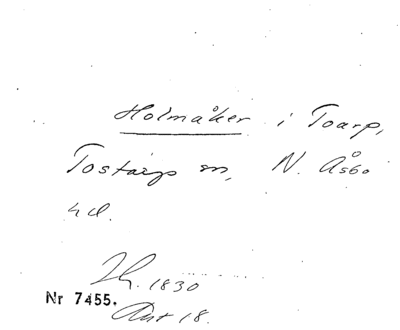 Holmåker i Toarp,
Tostarp sn, N. Åsbo
hd.
Lh. 1830
Nr 7455.
Akt 18.